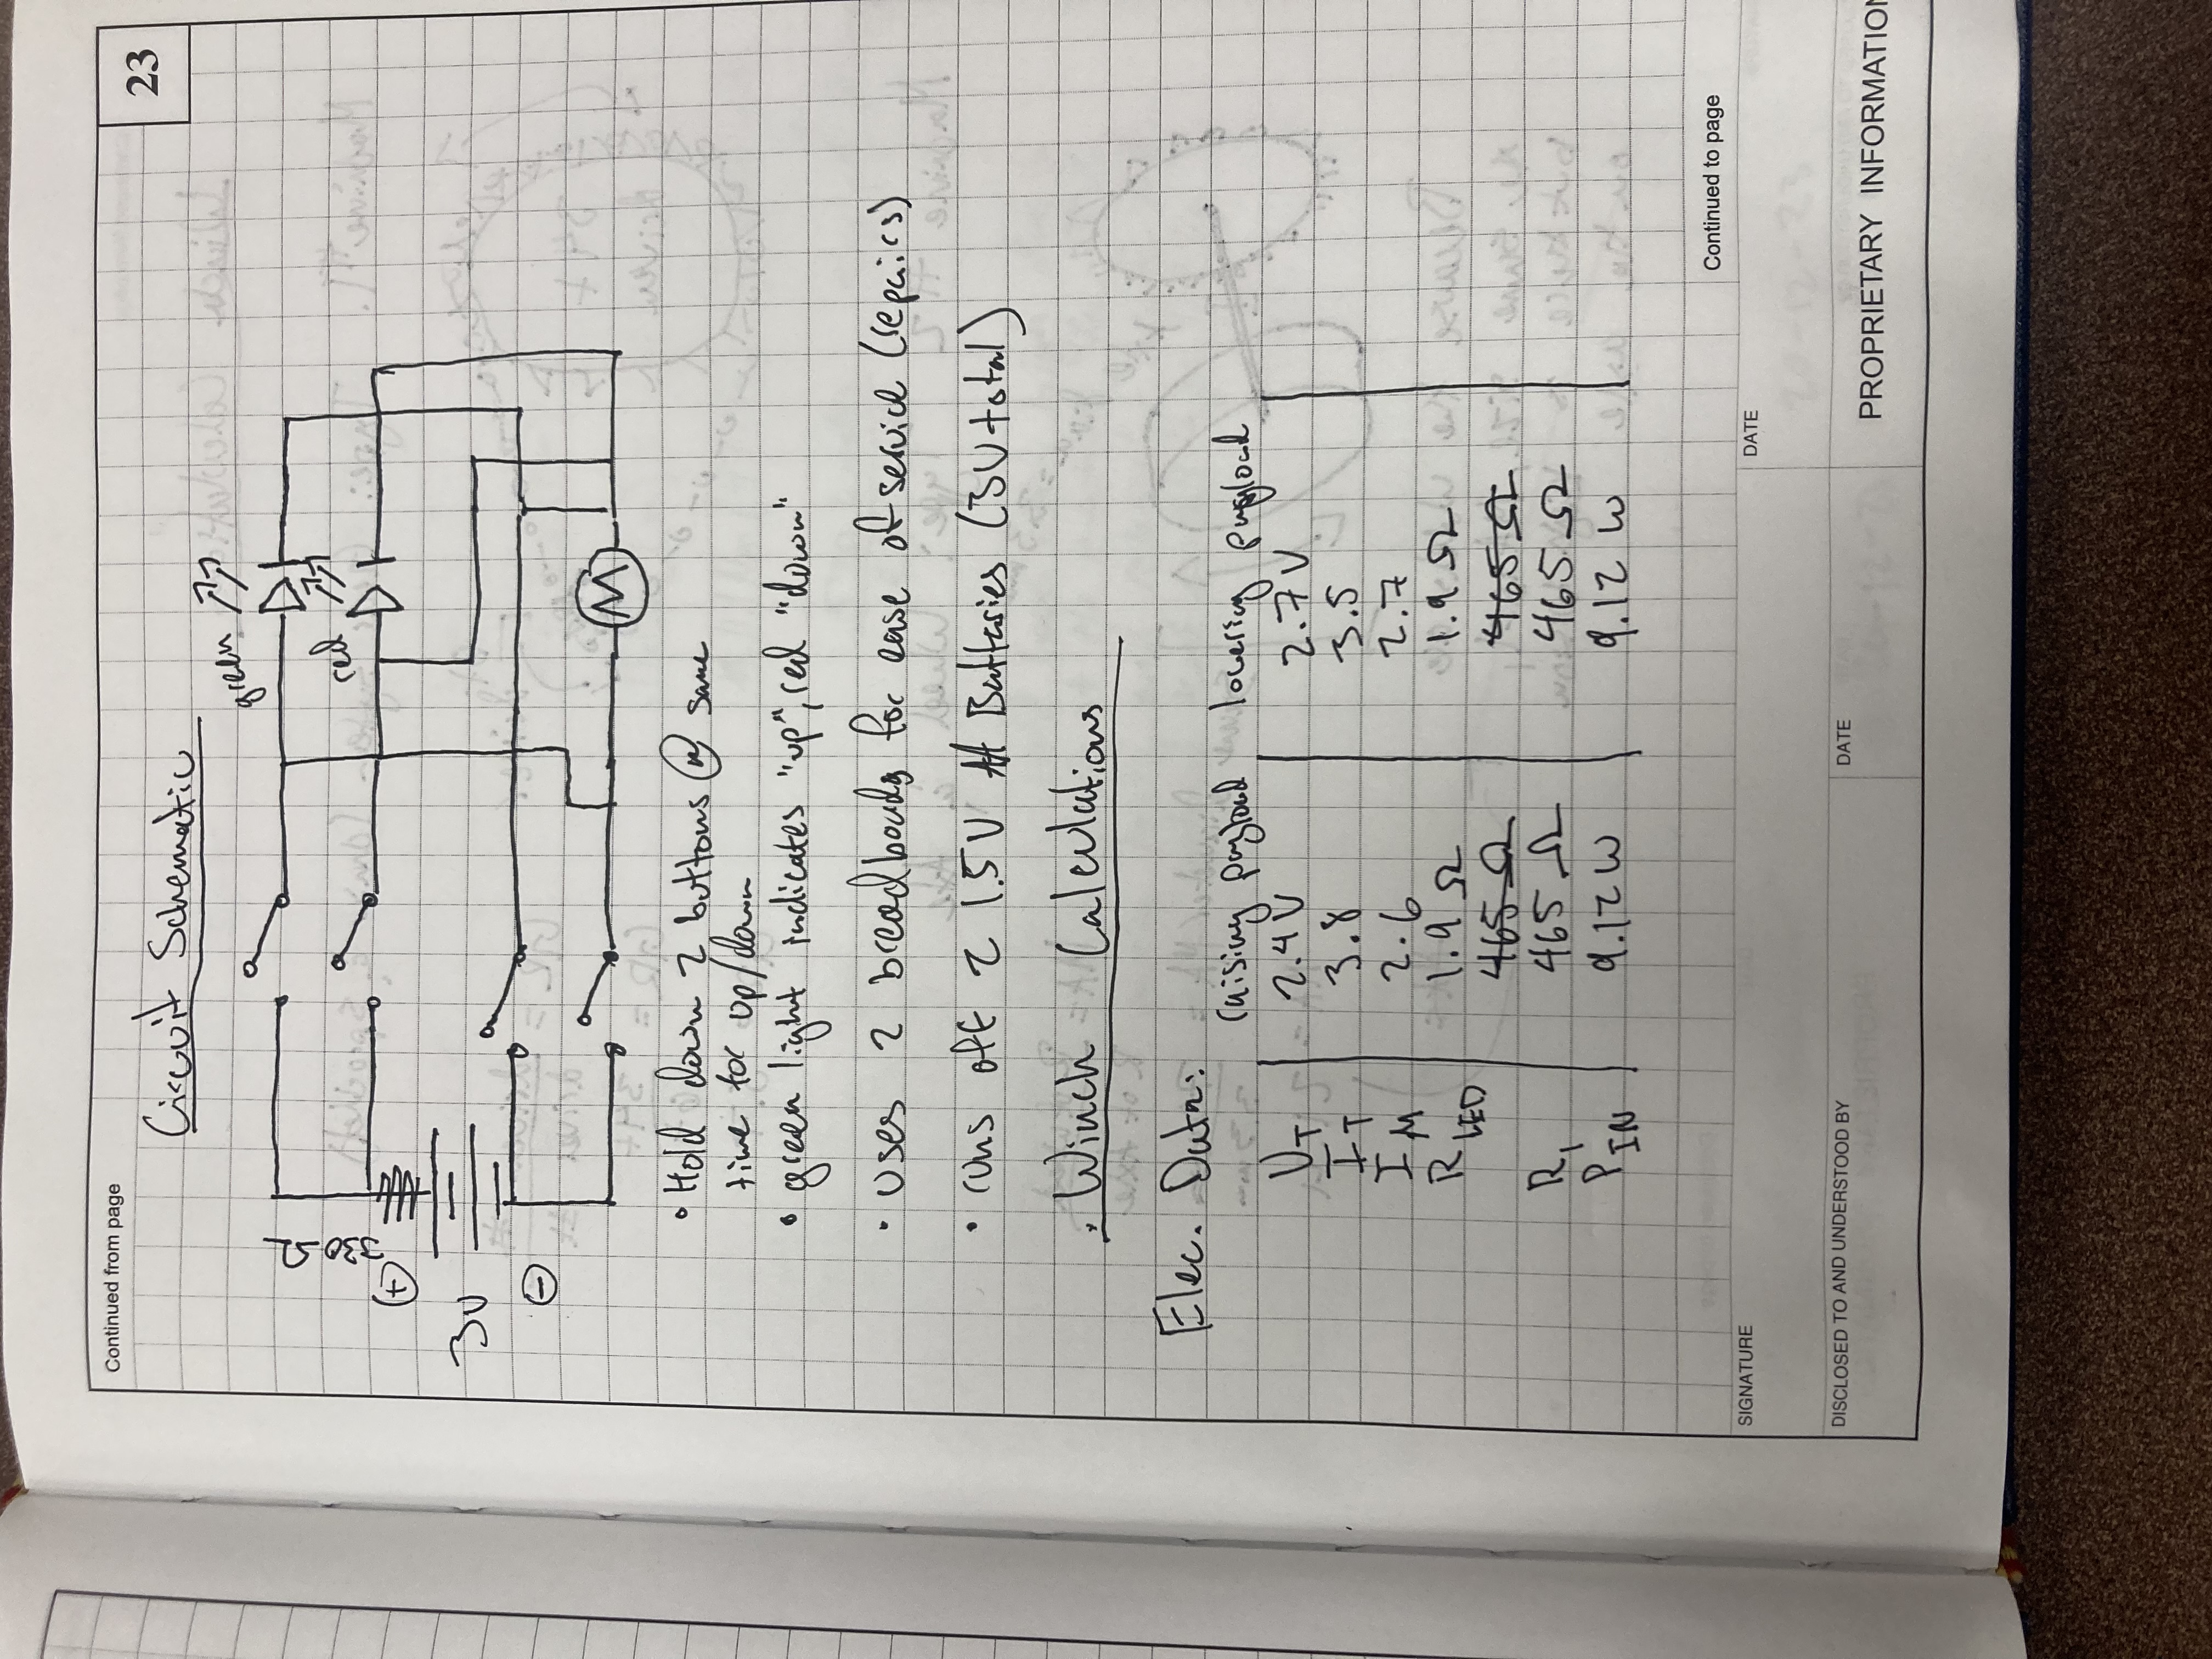 Continued from page
23
Circuit Schematic
green
330 Ω
red
+
3V
-
M
• Hold down 2 buttons @ same
time for up/down
• green light indicates "up", red "down"
• uses 2 breadboards for ease of service (repairs)
• runs off 2 1.5V AA Batteries (3V total)
. Winch Calculations
Elec. Data:
raising payload lowering payload
V_T 2.4V 2.7V
I_T 3.8 3.5
I_M 2.6 2.7
R_LED 1.9 Ω 1.9 Ω
465 Ω 465 Ω
R_1 465 Ω 465 Ω
P_IN 9.12 W 9.12 W
Continued to page
SIGNATURE DATE
DISCLOSED TO AND UNDERSTOOD BY DATE
PROPRIETARY INFORMATION